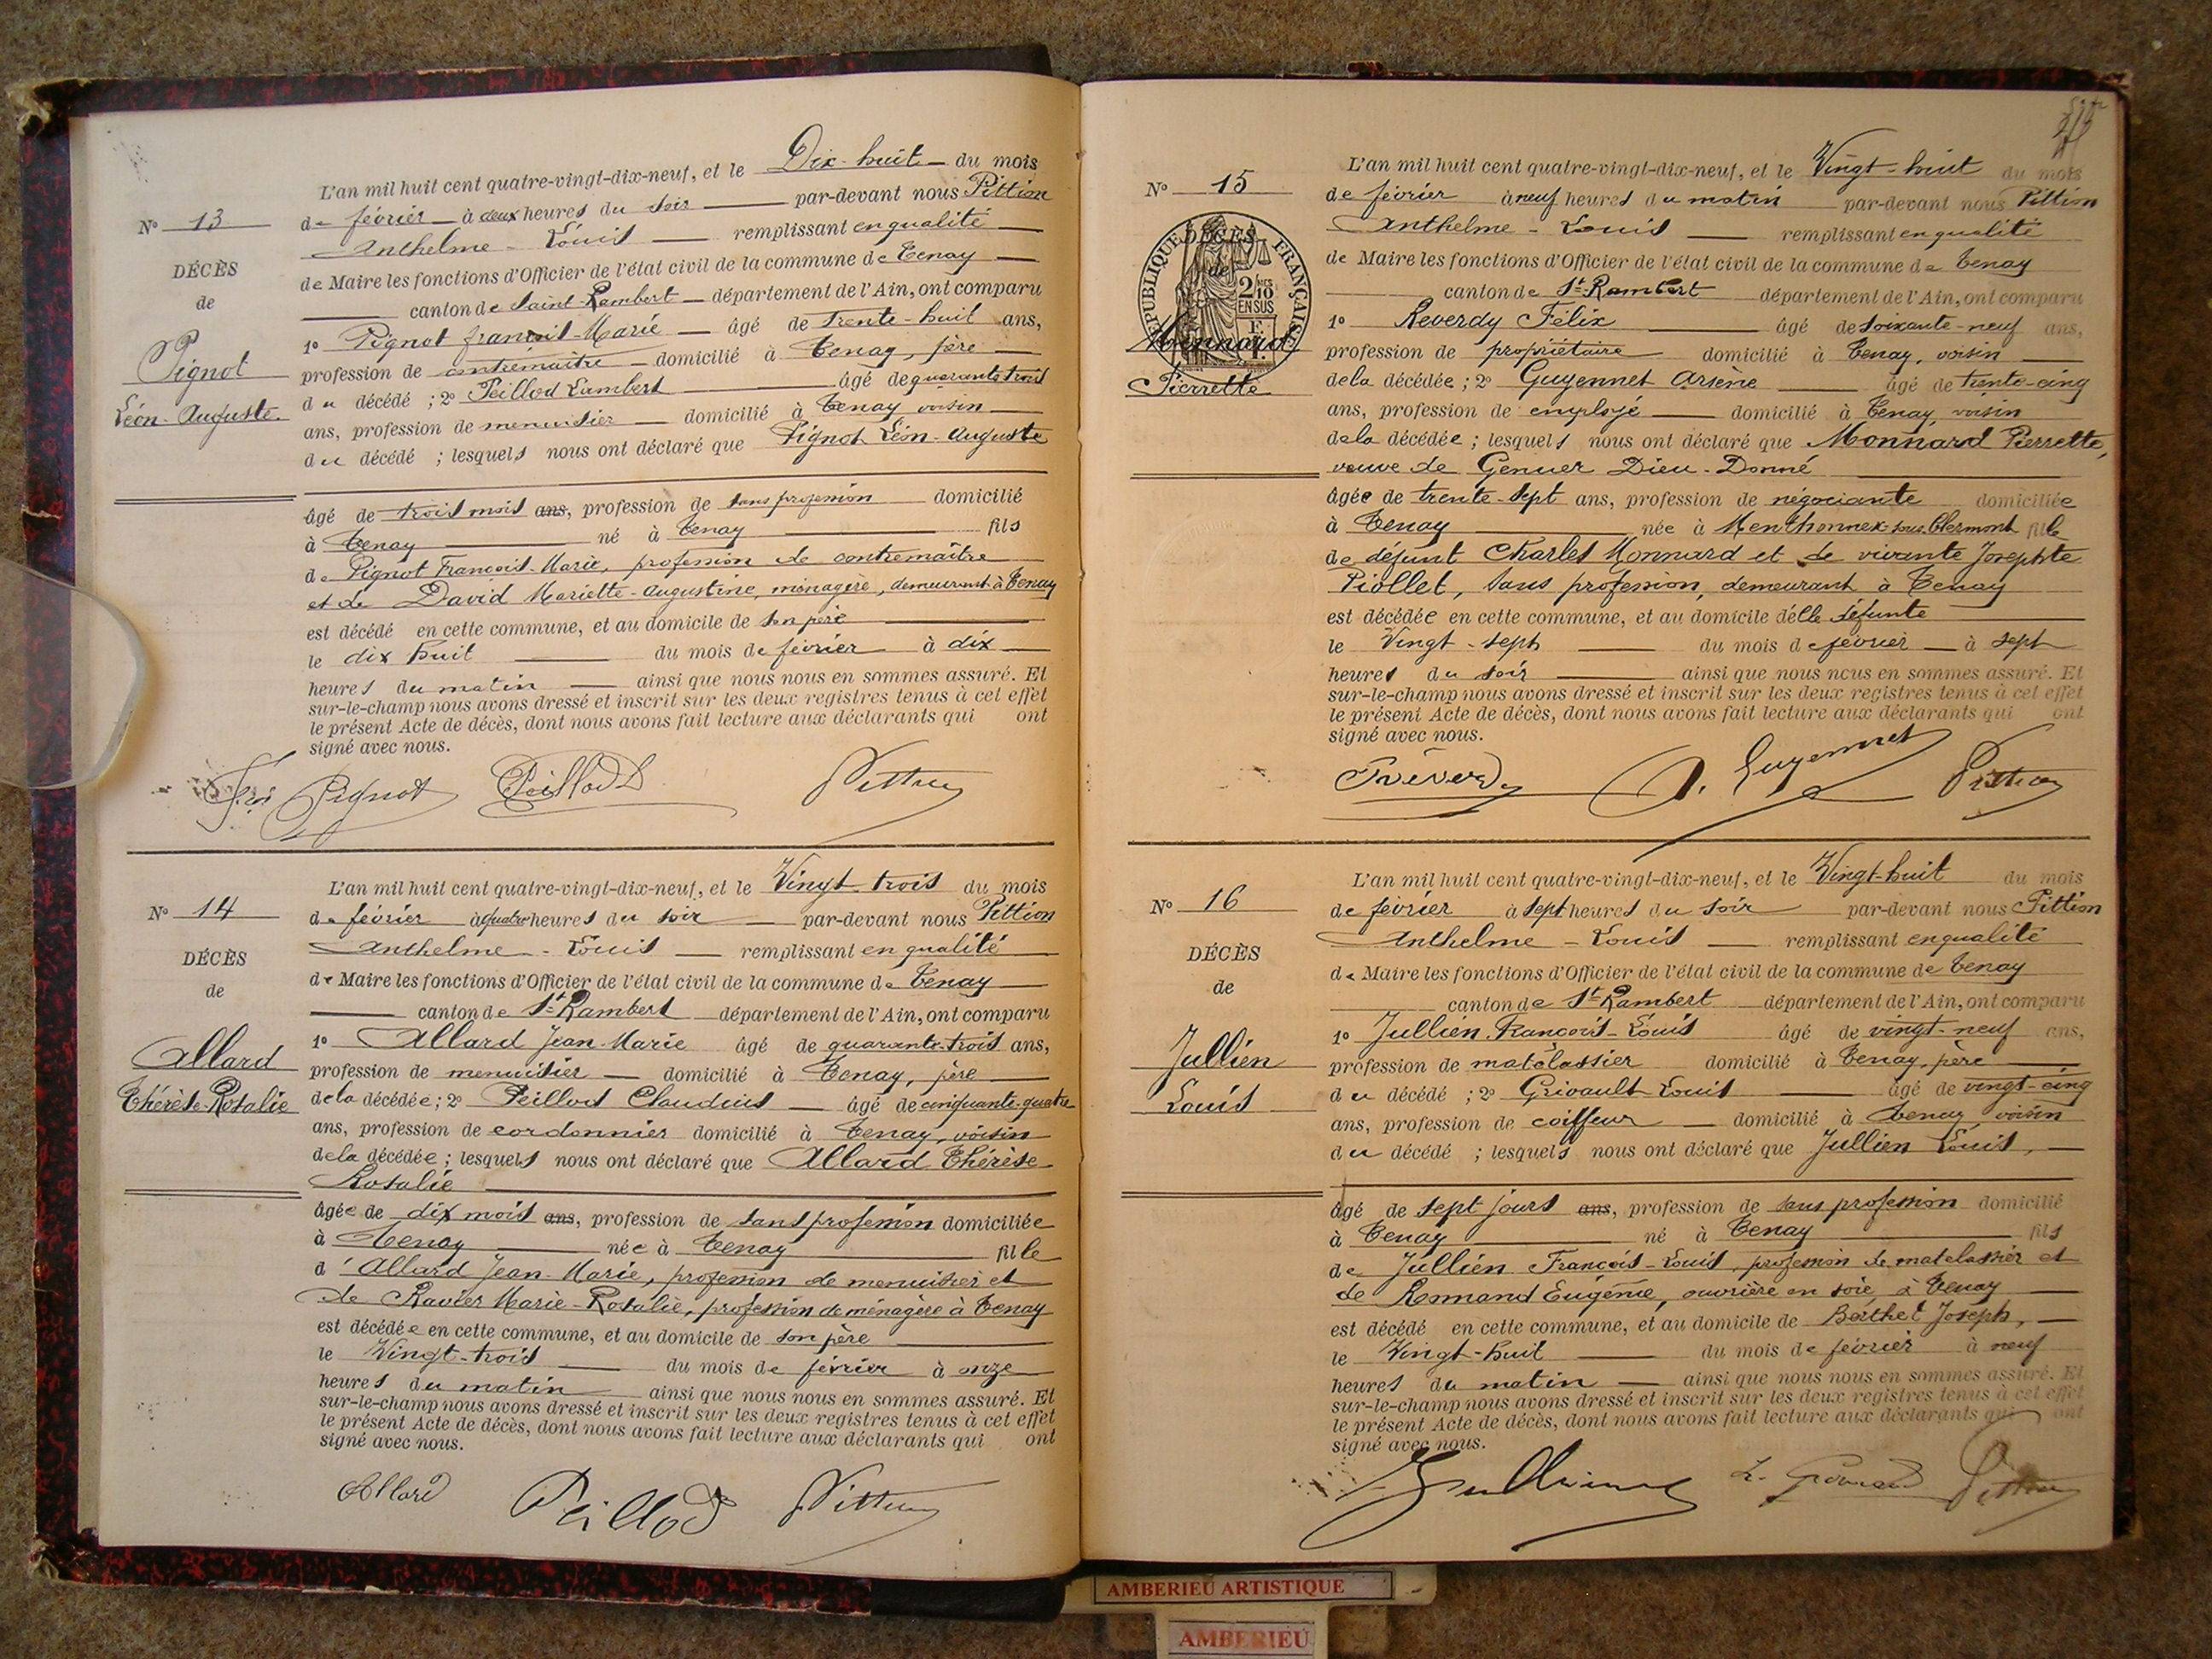 L'an mil huit cent quatre-vingt-dix-neuf, et le Dix-huit du mois
N° 13
de février à deux heures du soir par-devant nous Pittion
Anthelme - Louis remplissant en qualité
DÉCÈS
de Maire les fonctions d'Officier de l'état civil de la commune de Tenay
de
canton de Saint-Rambert département de l'Ain, ont comparu
1° Pignot François-Marie âgé de trente-huit ans,
Pignot
profession de contremaître domicilié à Tenay, père
Léon-Auguste
du décédé ; 2° Peillod Lambert âgé de quarante trois
ans, profession de menuisier domicilié à Tenay, voisin
du décédé ; lesquels nous ont déclaré que Pignot Léon-Auguste
âgé de trois mois ans, profession de sans profession domicilié
à Tenay né à Tenay fils
de Pignot François-Marie, profession de contremaître
et de David Mariette-Augustine, ménagère, demeurant à Tenay
est décédé en cette commune, et au domicile de son père
le dix huit du mois de février à dix
heures du matin ainsi que nous nous en sommes assuré. Et
sur-le-champ nous avons dressé et inscrit sur les deux registres tenus à cet effet
le présent Acte de décès, dont nous avons fait lecture aux déclarants qui ont
signé avec nous.
Pignot Peillod L Pittion
L'an mil huit cent quatre-vingt-dix-neuf, et le Vingt-trois du mois
N° 14
de février à quatre heures du soir par-devant nous Pittion
Anthelme - Louis remplissant en qualité
DÉCÈS
de Maire les fonctions d'Officier de l'état civil de la commune de Tenay
de
canton de St-Rambert département de l'Ain, ont comparu
1° Allard Jean-Marie âgé de quarante-trois ans,
Allard
profession de menuisier domicilié à Tenay, père
Thérèse-Rosalie
de la décédée ; 2° Peillod Claudius âgé de cinquante-quatre
ans, profession de cordonnier domicilié à Tenay, voisin
de la décédée ; lesquels nous ont déclaré que Allard Thérèse
Rosalie
âgée de dix mois ans, profession de sans profession domiciliée
à Tenay née à Tenay fille
d'Allard Jean-Marie, profession de menuisier et
de Ravier Marie-Rosalie, profession de ménagère à Tenay
est décédée en cette commune, et au domicile de son père
le Vingt-trois du mois de février à onze
heures du matin ainsi que nous nous en sommes assuré. Et
sur-le-champ nous avons dressé et inscrit sur les deux registres tenus à cet effet
le présent Acte de décès, dont nous avons fait lecture aux déclarants qui ont
signé avec nous.
Allard Peillod Pittion
L'an mil huit cent quatre-vingt-dix-neuf, et le Vingt-huit du mois
N° 15
de février à neuf heures du matin par-devant nous Pittion
Anthelme - Louis remplissant en qualité
RÉPUBLIQUE FRANÇAISE
DÉCÈS
de
2/10 EN SUS
de Maire les fonctions d'Officier de l'état civil de la commune de Tenay
canton de St-Rambert département de l'Ain, ont comparu
1° Reverdy Félix âgé de soixante-neuf ans,
Monnard
profession de propriétaire domicilié à Tenay, voisin
Pierrette
de la décédée ; 2° Guyennet Arsène âgé de trente-cinq
ans, profession de employé domicilié à Tenay, voisin
de la décédée ; lesquels nous ont déclaré que Monnard Pierrette,
veuve de Genuer Dieu-Donné
âgée de trente-sept ans, profession de négociante domiciliée
à Tenay née à Menthonnex-sous-Clermont fille
de défunt Charles Monnard et de vivante Josephte
Piollet, sans profession, demeurant à Tenay
est décédée en cette commune, et au domicile de la défunte
le Vingt-sept du mois de février à sept
heures du soir ainsi que nous nous en sommes assuré. Et
sur-le-champ nous avons dressé et inscrit sur les deux registres tenus à cet effet
le présent Acte de décès, dont nous avons fait lecture aux déclarants qui ont
signé avec nous.
A. Guyennet Pittion
L'an mil huit cent quatre-vingt-dix-neuf, et le Vingt-huit du mois
N° 16
de février à sept heures du soir par-devant nous Pittion
Anthelme - Louis remplissant en qualité
DÉCÈS
de Maire les fonctions d'Officier de l'état civil de la commune de Tenay
de
canton de St-Rambert département de l'Ain, ont comparu
1° Jullien François-Louis âgé de vingt-neuf ans,
Jullien
profession de matelassier domicilié à Tenay, père
Louis
du décédé ; 2° Grivault Louis âgé de vingt-cinq
ans, profession de coiffeur domicilié à Tenay, voisin
du décédé ; lesquels nous ont déclaré que Jullien Louis,
âgé de sept jours ans, profession de sans profession domicilié
à Tenay né à Tenay fils
de Jullien François-Louis, profession de matelassier et
de Ronnand Eugénie, ouvrière en soie, à Tenay
est décédé en cette commune, et au domicile de Berthet Joseph,
le Vingt-huit du mois de février à neuf
heures du matin ainsi que nous nous en sommes assuré. Et
sur-le-champ nous avons dressé et inscrit sur les deux registres tenus à cet effet
le présent Acte de décès, dont nous avons fait lecture aux déclarants qui ont
signé avec nous.
Jullien Pittion
AMBERIEU ARTISTIQUE
AMBERIEU